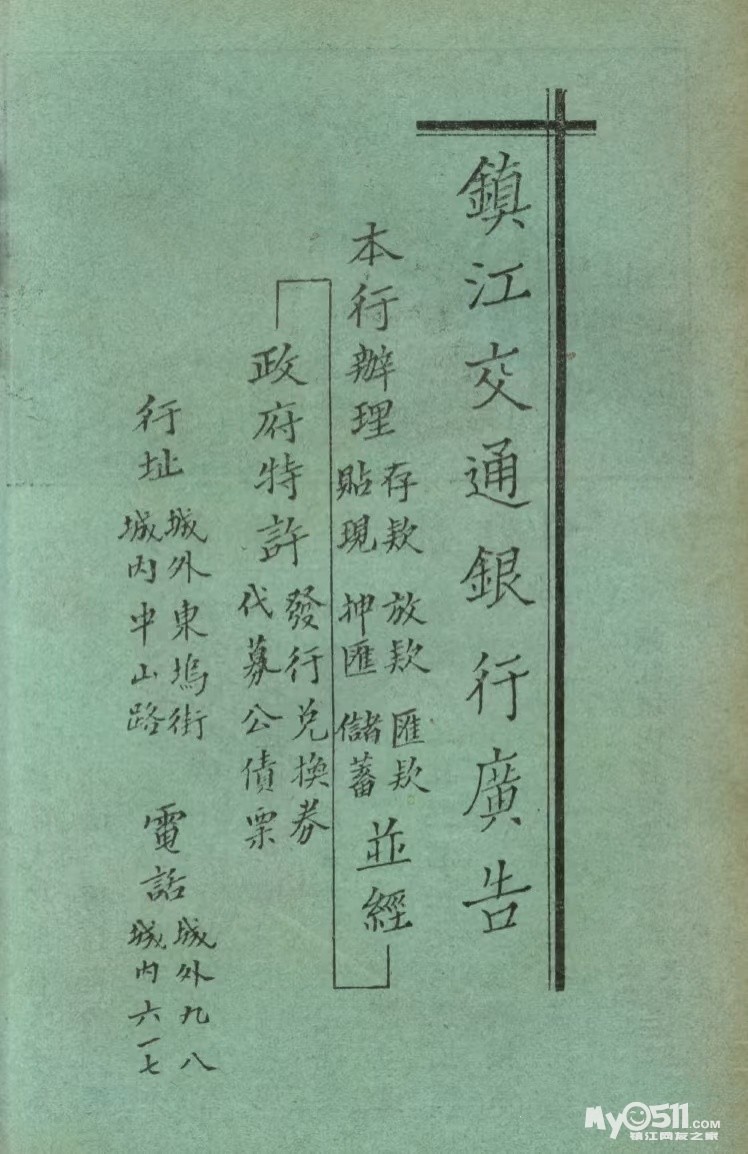 鎮江交通銀行廣告
本行辦理
存欵 放欵 匯欵
貼現 押匯 儲蓄
並經
政府特許
發行兑換券
代募公債票
行址
城外東塢街
城内中山路
電話
城外九八
城内六一七
My0511.COM
镇江网友之家